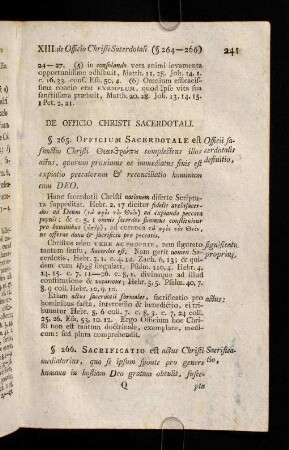 XIII. de Officio Christi Sacerdotali (§ 264—266) 241
24—27. (5) in consolando vera animi levamenta
opportunissime adhibuit, Matth. 11, 28. Joh. 14, 1.
c. 16, 33. conf. Esi. 50, 4. (6) Omnium efficacissi-
ma concio erat EXEMPLUM, quod Ipse vita sua
sanctissima præbuit, Matth. 20, 28. Joh. 13, 14. 15.
1 Pet. 2, 21.
DE OFFICIO CHRISTI SACERDOTALI.
§ 265. OFFICIUM SACERDOTALE est
functio Christi complectens illos
actus, quorum proximus ac immediatus finis est
expiatio peccatorum & reconciliatio hominum
cum DEO.
Officii sa-
cerdotalis
definitio,
Hanc sacerdotii Christi notionem diserte Scriptu-
ra suppeditat. Hebr. 2, 17 dicitur fidelis archisacer-
dos ad Deum (τὰ πρὸς τὸν Θεὸν) ad expianda peccata
populi; & c. 5, 1 omnis sacerdos summus constituitur
pro hominibus (ὑπὲρ), ad causas τὰ πρὸς τὸν Θεὸν,
ut offerat dona & sacrificia pro peccatis.
Christus idem VERE AC PROPRIE, non figurato
tantum sensu, Sacerdos est. Nam gerit nomen Sa-
cerdotis, Hebr. 3, 1. c. 4, 14. Zach. 6, 13; & qui-
dem cum singulari, Psalm. 110, 4. Hebr. 4,
14. 15. c. 7, 11—26. c. 8, 1. divinitus ad illud
constitutione & Hebr. 5, 4—6. Psalm. 40, 7.
8. 9 coll. Hebr. 10, 9. 10.
significatus
proprius,
Etiam actus sacerdotii formales, sacrificatio pro
hominibus facta, intercessio & benedictio, ei tri-
buuntur Hebr. 5, 6 coll. 7. c. 8, 3. c. 7, 24 coll.
25, 26. Esi. 53, 10. 12. Ergo Officium hoc Chri-
sti non est tantum doctrinale, exemplare, medi-
cum: sed plura comprehendit.
actus:
§ 266. SACRIFICATIO est actus Christi
mediatorius, quo se ipsum sponte pro genere
humano in hostiam Deo gratam obtulit, susce-
Sacrifica-
tio,
Q pta